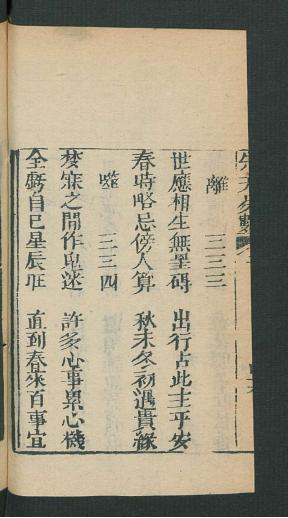 離 三三三
世應相生無罣碍 出行占此主平安
春時略忌傍人算 秋末冬初遇貴緣
噬 三三四
梦寐之間作鬼迷 許多心事累心機
全虧自己星辰旺 直到春來百事宜